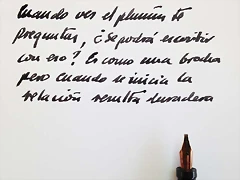 Cuando ves el plumín te
preguntas, ¿Se podrá escribir
con eso? Es como una brocha
pero cuando se inicia la
relación resulta duradera